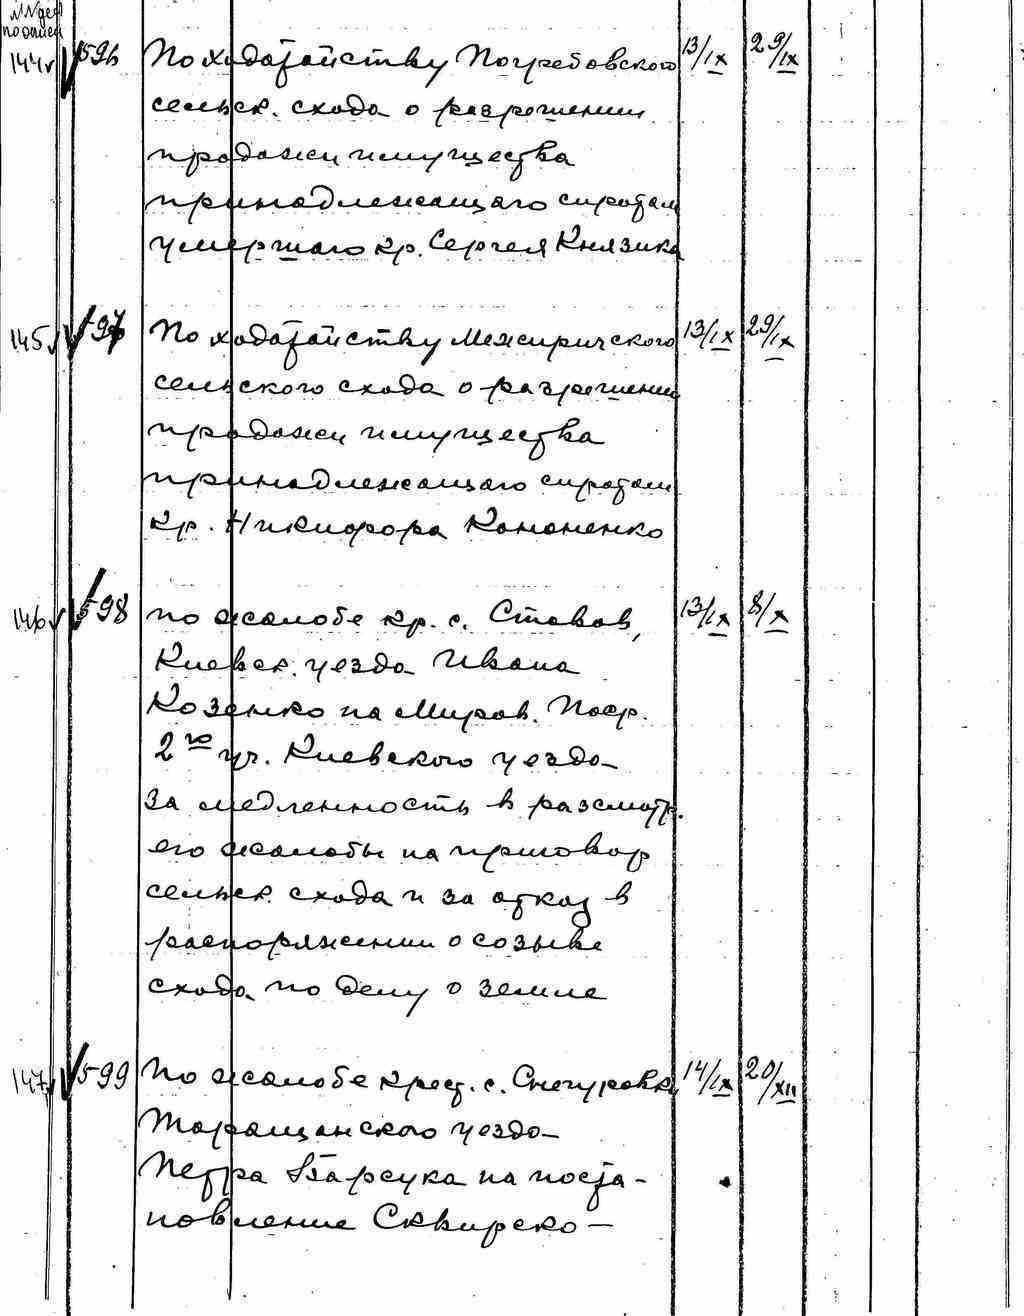 №№ дел
по описи
144 596 По ходатайству Погребовского 13/IX 29/IX
сельск. схода о разрешении
продажи имущества
принадлежащаго сиротам
умершаго кр. Сергея Князика
145 597 По ходатайству Межиричского 13/IX 29/IX
сельского схода о разрешении
продажи имущества
принадлежащаго сиротам
кр. Никифора Кононенко
146 598 по жалобе кр. с. Ставов, 13/IX 8/X
Киевск. уезда Ивана
Козенко на Миров. Поср.
2го уч. Киевского уезда
за медленность в разсмотр.
его жалобы на приговор
сельск. схода и за отказ в
распоряжении о созыве
схода по делу о земле
147 599 По жалобе крест. с. Снегуровки 14/IX 20/XII
Таращанского уезда
Петра Барсука на поста-
новление Сквирско-